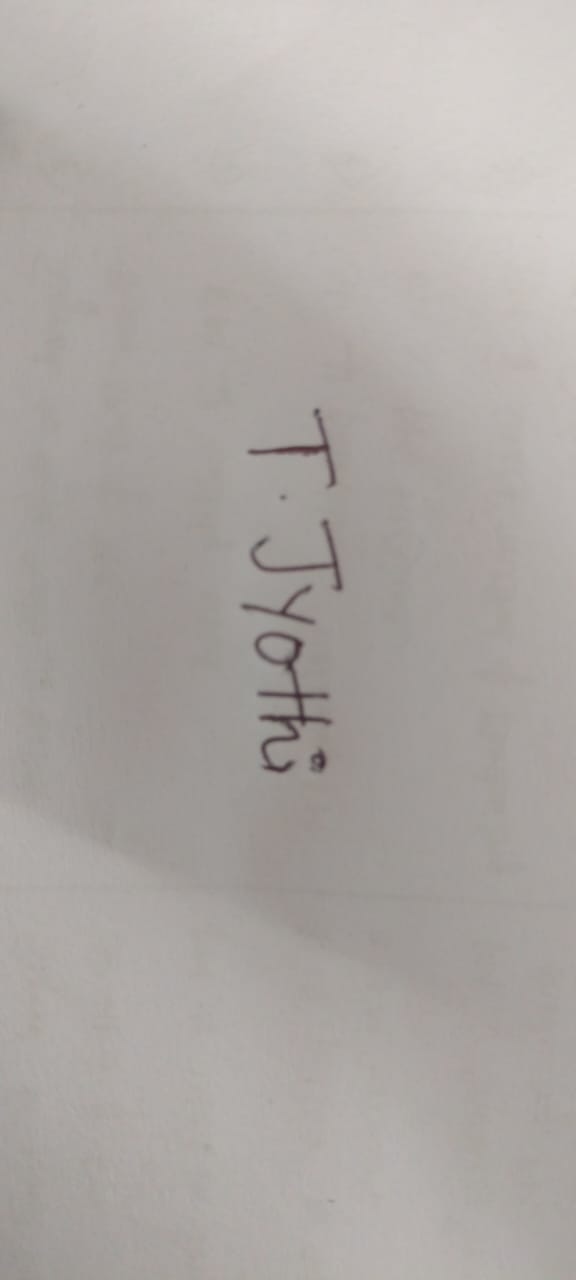 T. Jyothi